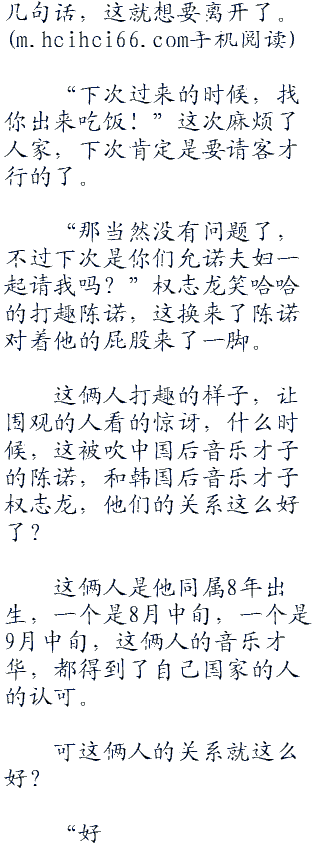 几句话，这就想要离开了。
(m.hcihci66.com手机阅读)
“下次过来的时候，找
你出来吃饭！”这次麻烦了
人家，下次肯定是要请客才
行的了。
“那当然没有问题了，
不过下次是你们允诺夫妇一
起请我吗？”权志龙笑哈哈
的打趣陈诺，这换来了陈诺
对着他的屁股来了一脚。
这俩人打趣的样子，让
围观的人看的惊讶，什么时
候，这被吹中国后音乐才子
的陈诺，和韩国后音乐才子
权志龙，他们的关系这么好
了？
这俩人是他同属8年出
生，一个是8月中旬，一个是
9月中旬，这俩人的音乐才
华，都得到了自己国家的人
的认可。
可这俩人的关系就这么
好？
“好